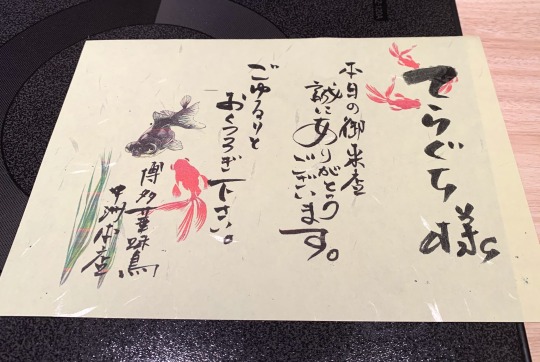 てらぐち様
本日の御来店
誠にありがとう
ございます。
ごゆるりと
おくつろぎ下さい。
博多華味鳥
中洲本店